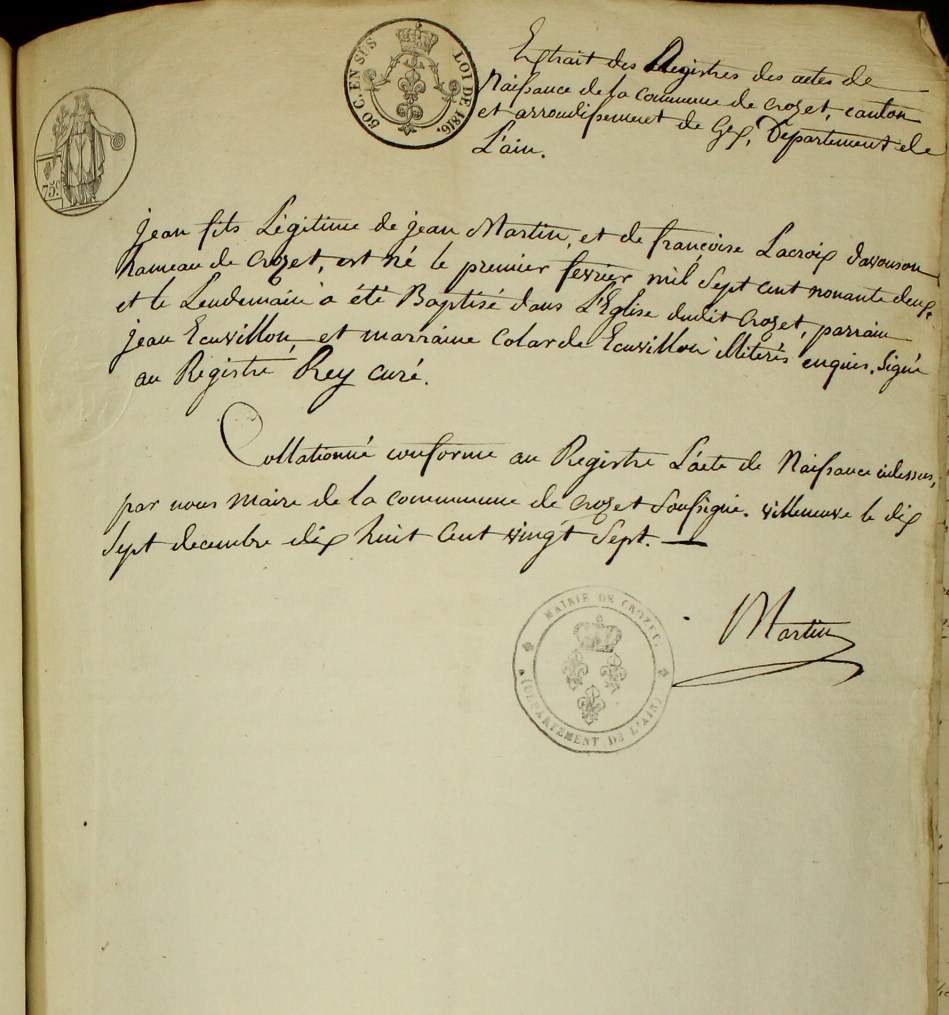 50 C. EN SUS
LOI DE 1816.
75 c
Extrait des Registres des actes de
Naissance de la commune de Crozet, canton
et arrondissement de Gex, Département de
L'ain.
jean fils Légitime de jean Martin, et de françoise Lacroix d'avouson
hameau de Crozet, est né le premier fevrier mil sept cent nonante deux,
et le Lendemain a été Baptisé dans L'Eglise dudit Crozet, parrain
jean Ecuvillon, et marraine Colarde Ecuvillon illiterés enquis. Signé
au Registre, Rey curé.
Collationné conforme au Registre L'acte de Naissance cidessus,
par nous maire de la commune de Crozet soussigné. villeneuve le dix
sept decembre dix huit cent vingt sept.
Martin
MAIRIE DE CROZET.
(DÉPARTEMENT DE L'AIN)